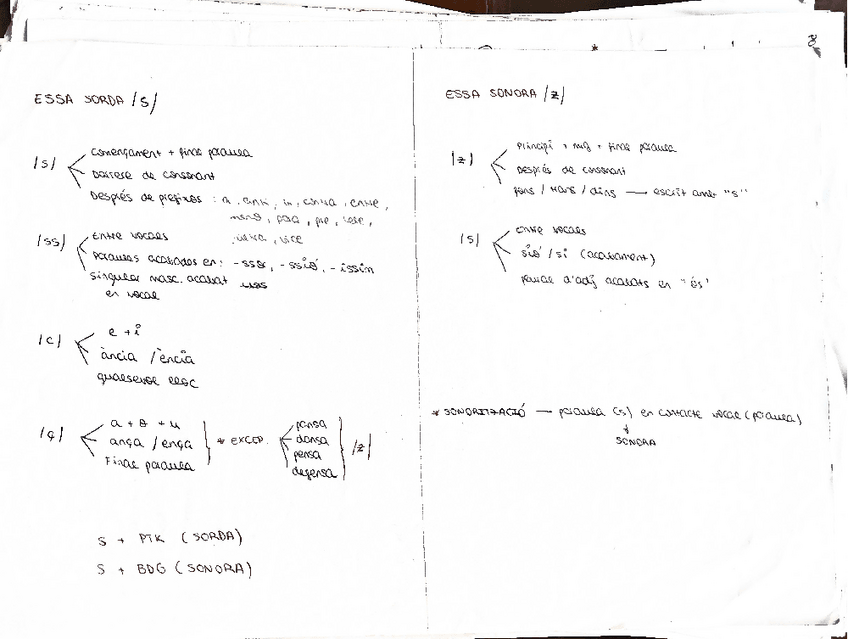 8
ESSA SORDA /S/
/S/
començament + final paraula
Darrere de consonant
Després de prefixos: a, anti, in, contra, entre,
mono, para, pre, tele,
ultra, vice
/SS/
entre vocals
paraules acabades en: -ssor, -ssió, -íssim
singular masc. acabat
en vocal
/C/
e + i
ància / ència
qualsevol lloc
/Ç/
a + o + u
ança / ença
Final paraula
* EXCEP.
pansa
dansa
pensa
defensa
/Z/
S + PTK (SORDA)
S + BDG (SONORA)
ESSA SONORA /Z/
/Z/
Principi + mig + final paraula
Després de consonant
fons / trans / dins — escrit amb "s"
/S/
entre vocals
sió / si (acabament)
plural d'adj acabats en "ós"
* SONORITZACIÓ — paraula (s) en contacte vocal (paraula)
SONORA